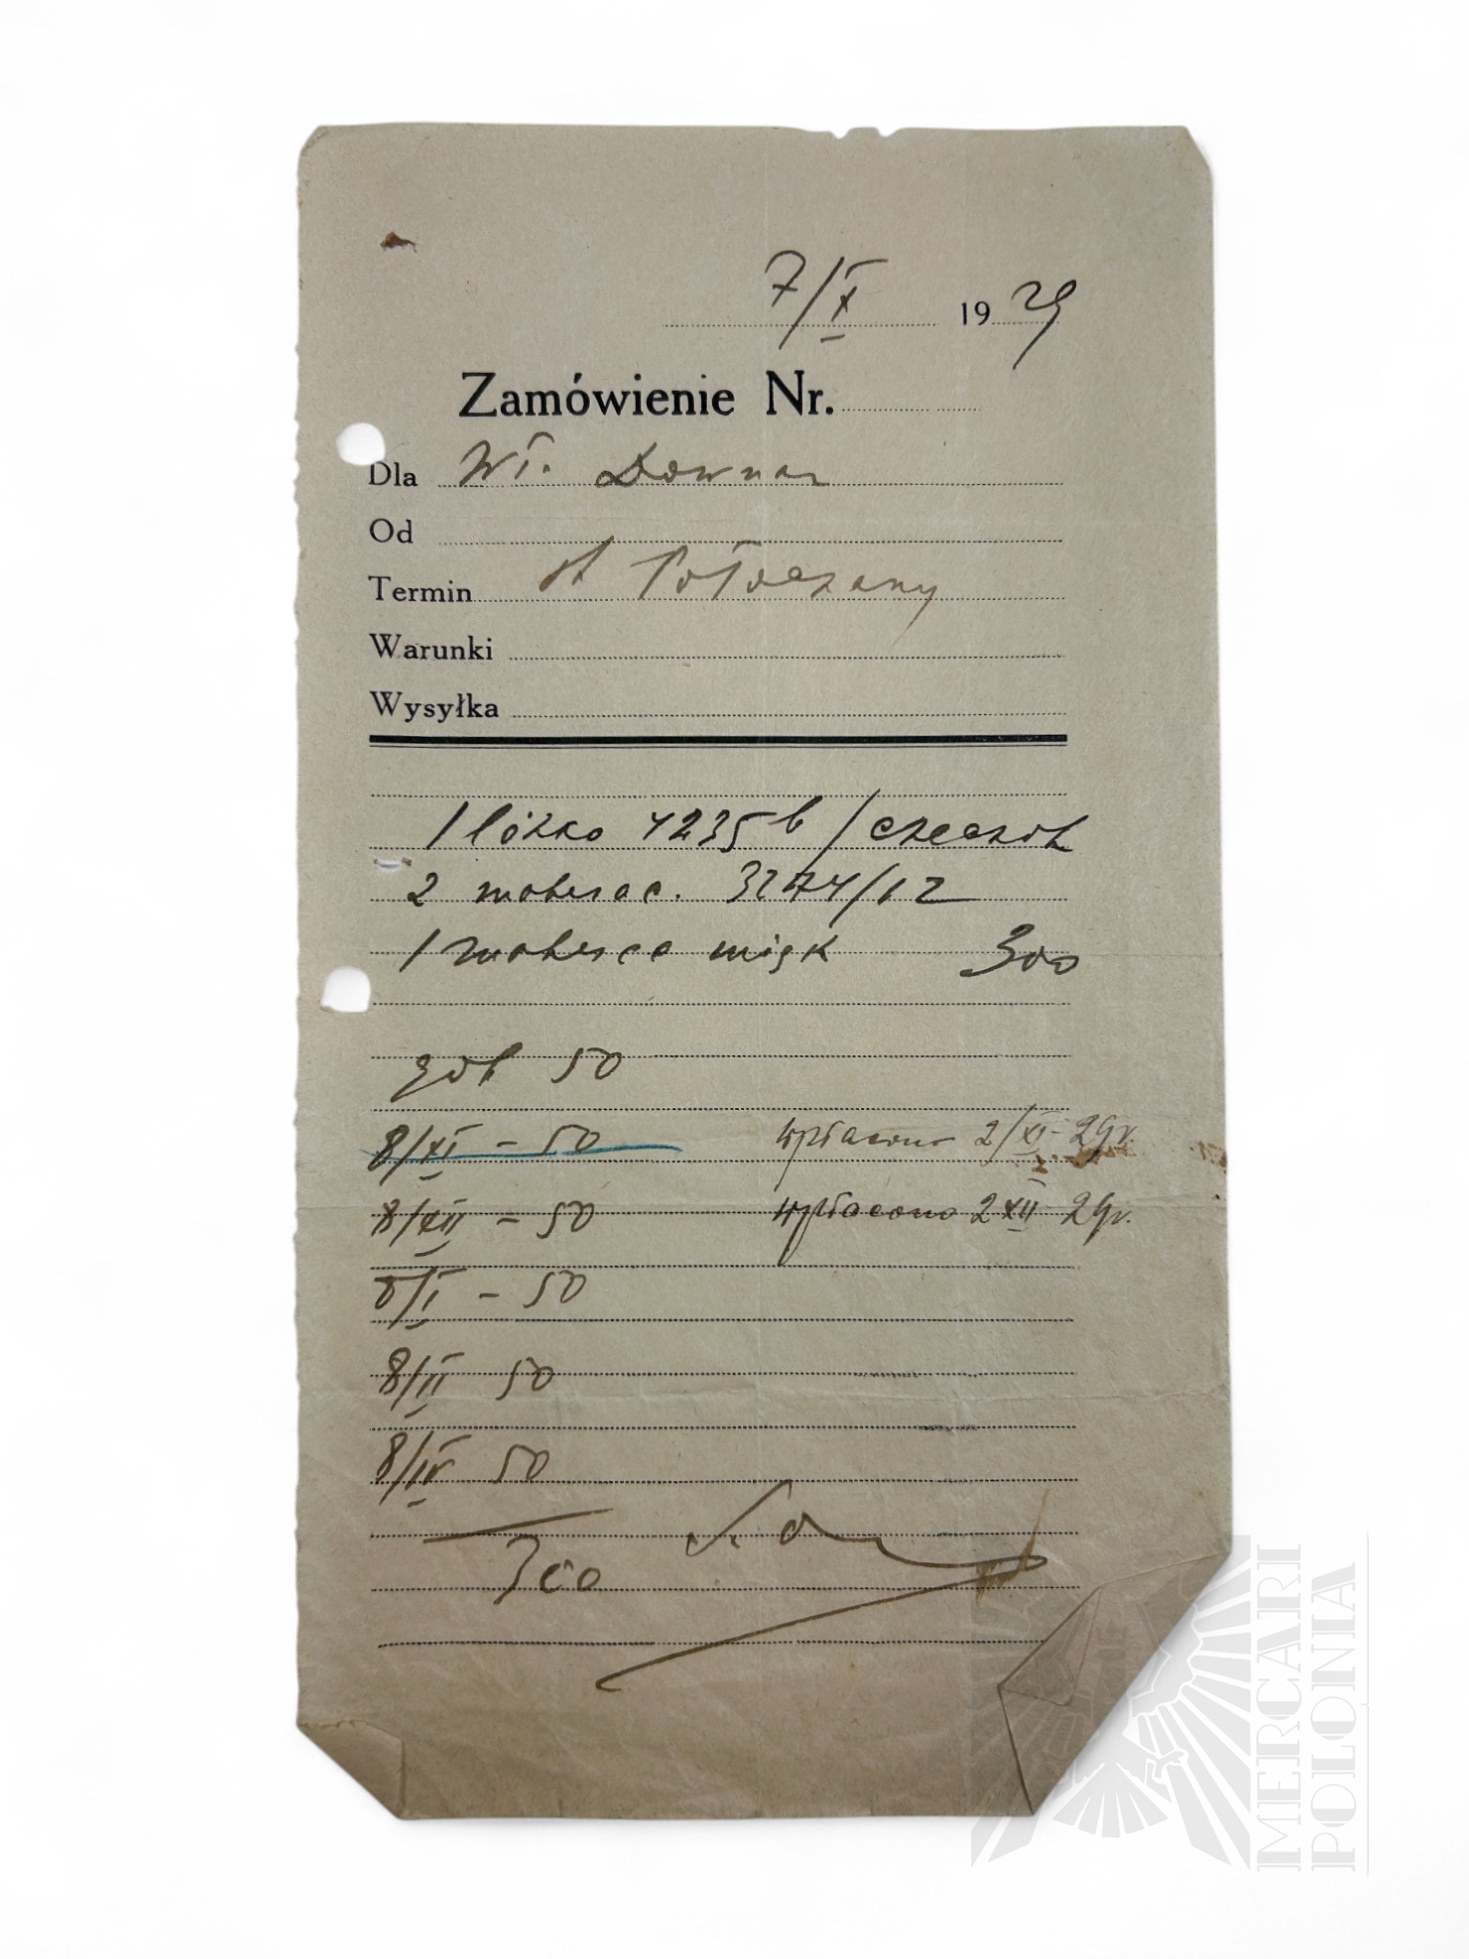 7/X 1929
Zamówienie Nr.
Dla Wł. Downar
Od
Termin st Połoczany
Warunki
Wysyłka
1 łóżko 4235 b / czeczot
2 materac. 3274/12
1 materac mięk 300
got 50
8/XI – 50 wpłacono 2/XI 29 r.
8/XII – 50 wpłacono 2 XII 29 r.
8/I – 50
8/II 50
8/IV 50
300
MERCARI
POLONIA